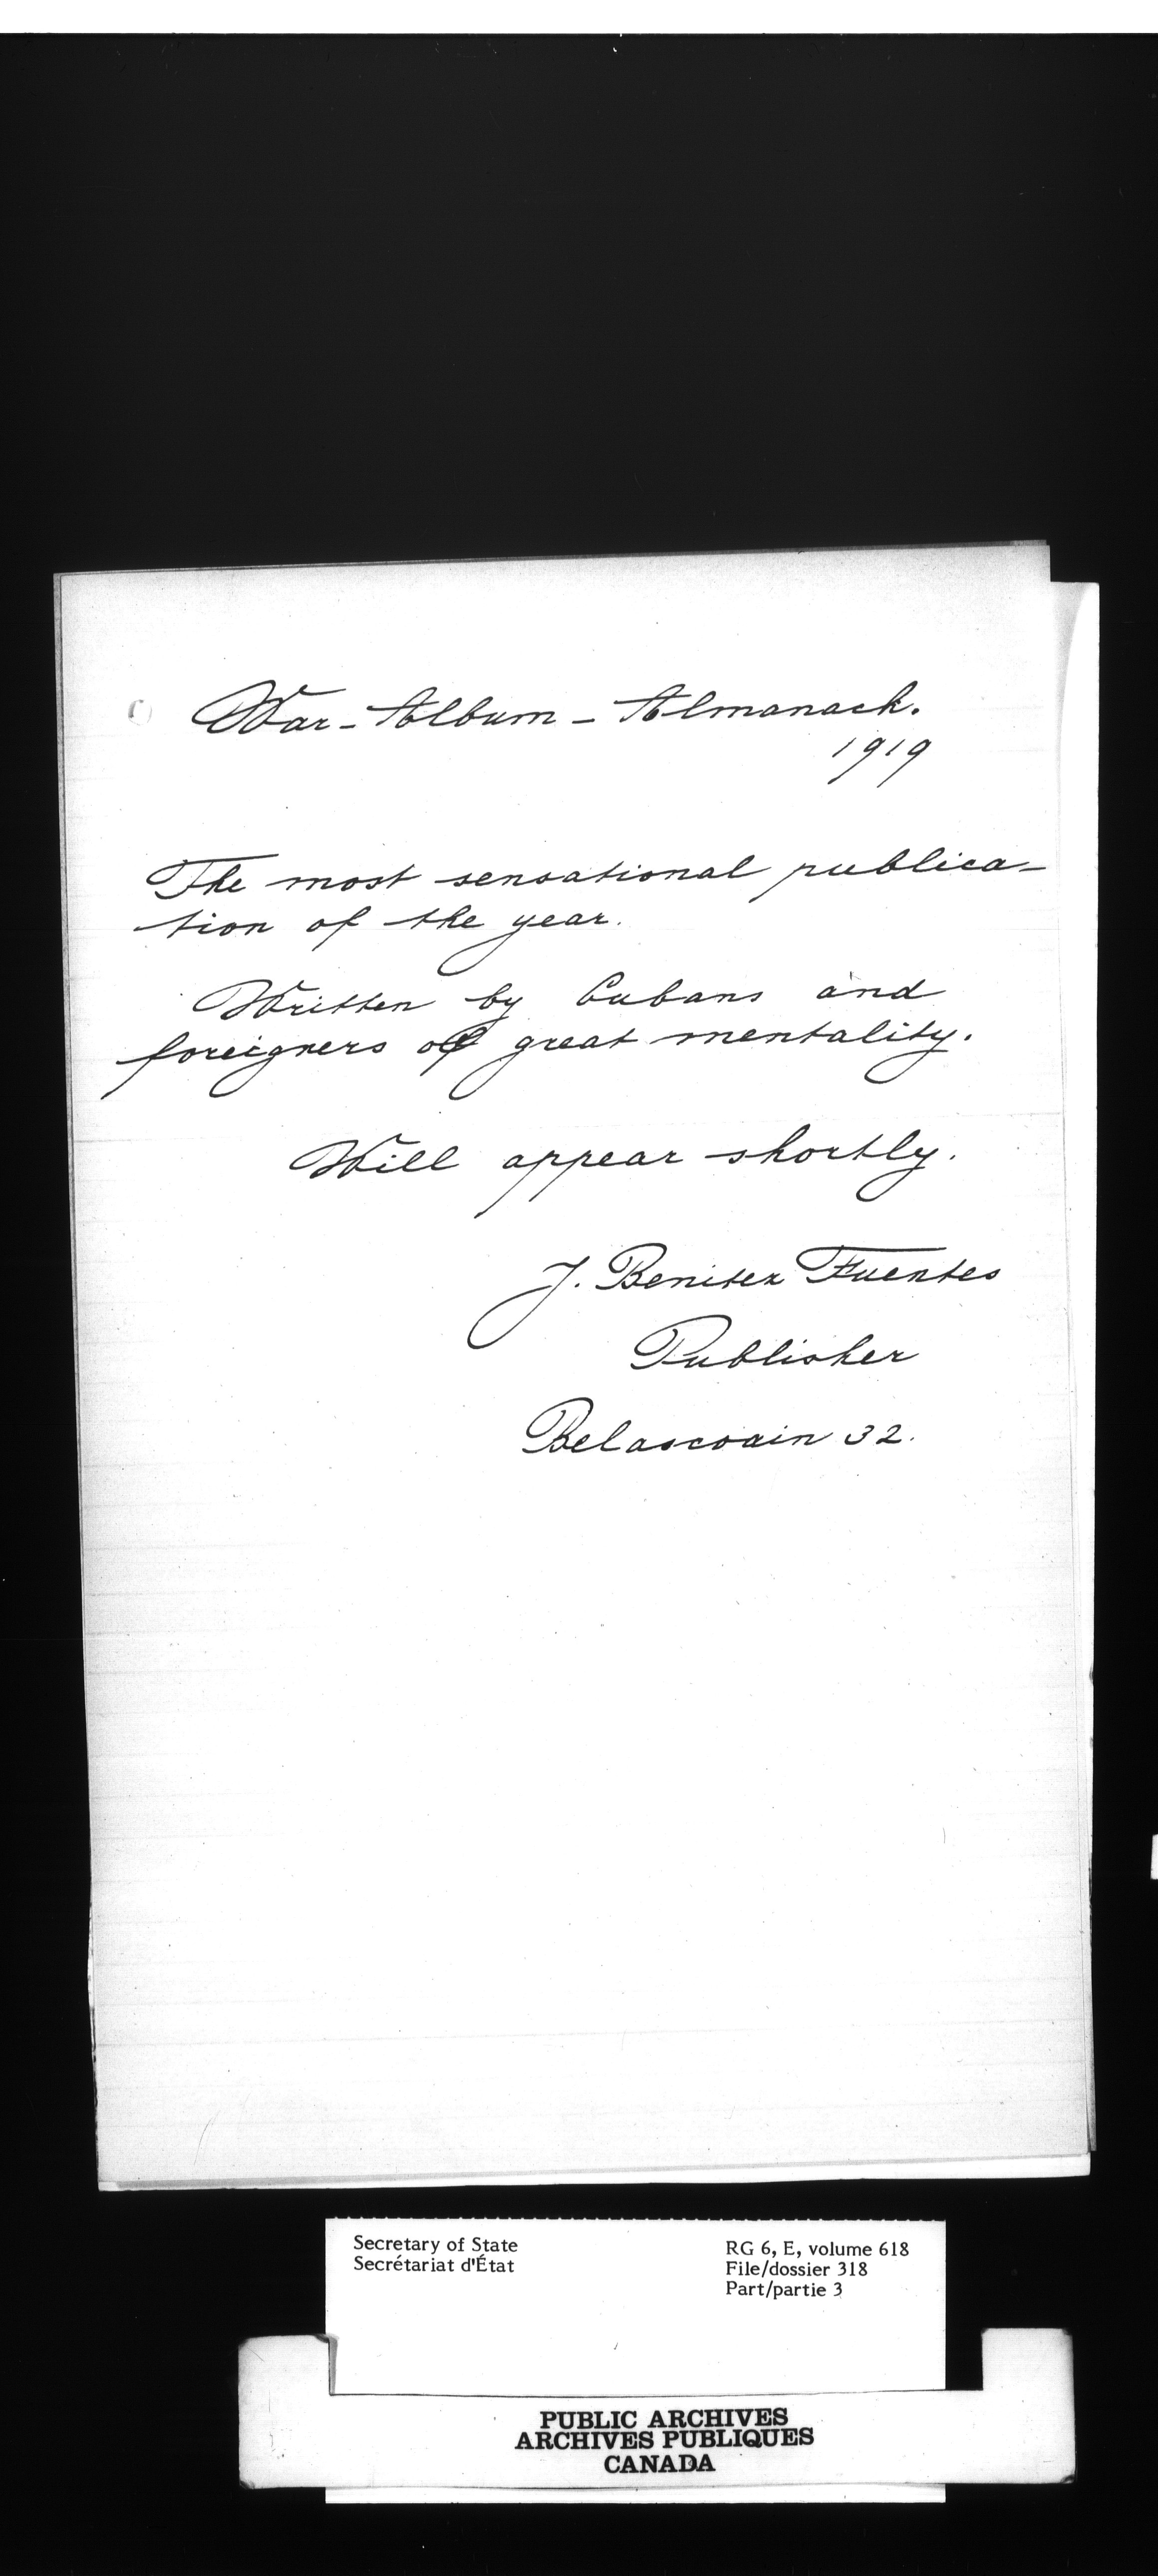 War-Album-Almanack.
1919
The most sensational publica-
tion of the year.
Written by Cubans and
foreigners of great mentality.
Will appear shortly.
J. Benitez Fuentes
Publisher
Belascoain 32.
Secretary of State
Secrétariat d'État
RG 6, E, volume 618
File/dossier 318
Part/partie 3
PUBLIC ARCHIVES
ARCHIVES PUBLIQUES
CANADA